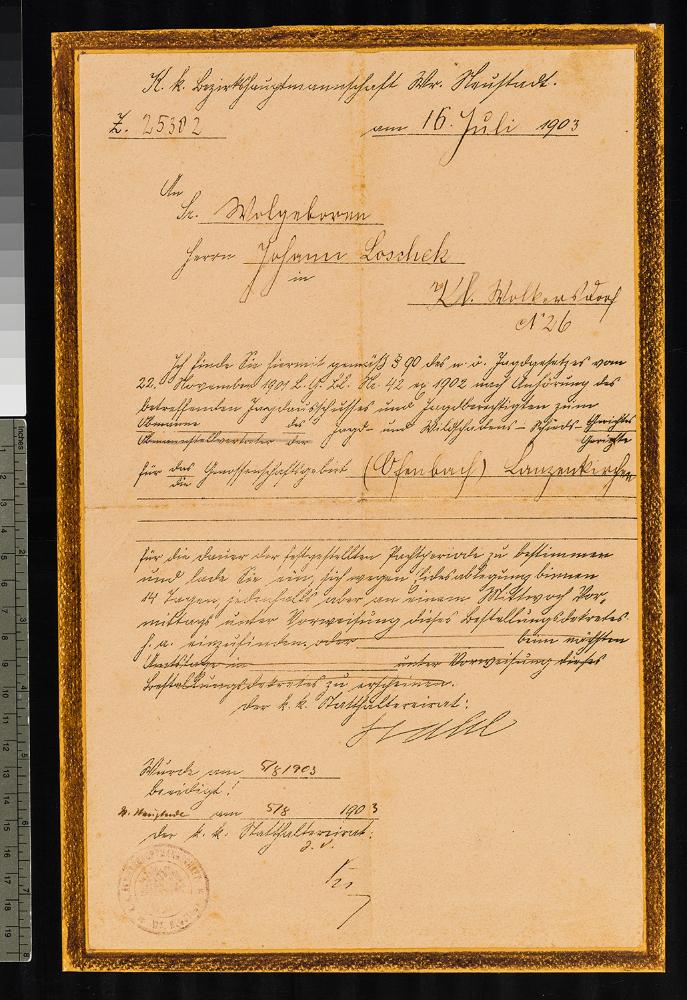 K. k. Bezirkshauptmannschaft Wr. Neustadt.
Z. 25302
am 16. Juli 1903
An
Sr. Wolgeboren
Herrn Johann Loschek
in
Kl. Wolkersdorf
No 26
Ich finde Sie hiermit gemäß § 90 des n. ö. Jagdgesetzes vom
22. November 1901 L. G. Bl. Nr. 42 ex 1902 nach Anhörung des
betreffenden Jagdausschusses und Jagdberechtigten zum
Obmanne des Jagd- und Wildschadens-Schieds-Gerichtes
Obmannstellvertreter der Gerichte
für das Genossenschaftsgebiet (Ofenbach) Lanzenkirchen
die
für die Dauer der festgestellten Pachtperiode zu bestimmen
und lade Sie ein, sich wegen Eidesablegung binnen
14 Tagen, jedenfalls aber an einem Mittwoch Vor-
mittags unter Vorweisung dieses Bestellungsdekretes
h. a. einzufinden, oder beim nächsten
Amtstage in unter Vorweisung dieses
Bestellungsdekretes zu erscheinen.
Der k. k. Statthaltereirat:
Wurde am 5/8 1903
beeidigt!
Wr. Neustadt am 5/8 1903
Der k. k. Statthaltereirat: